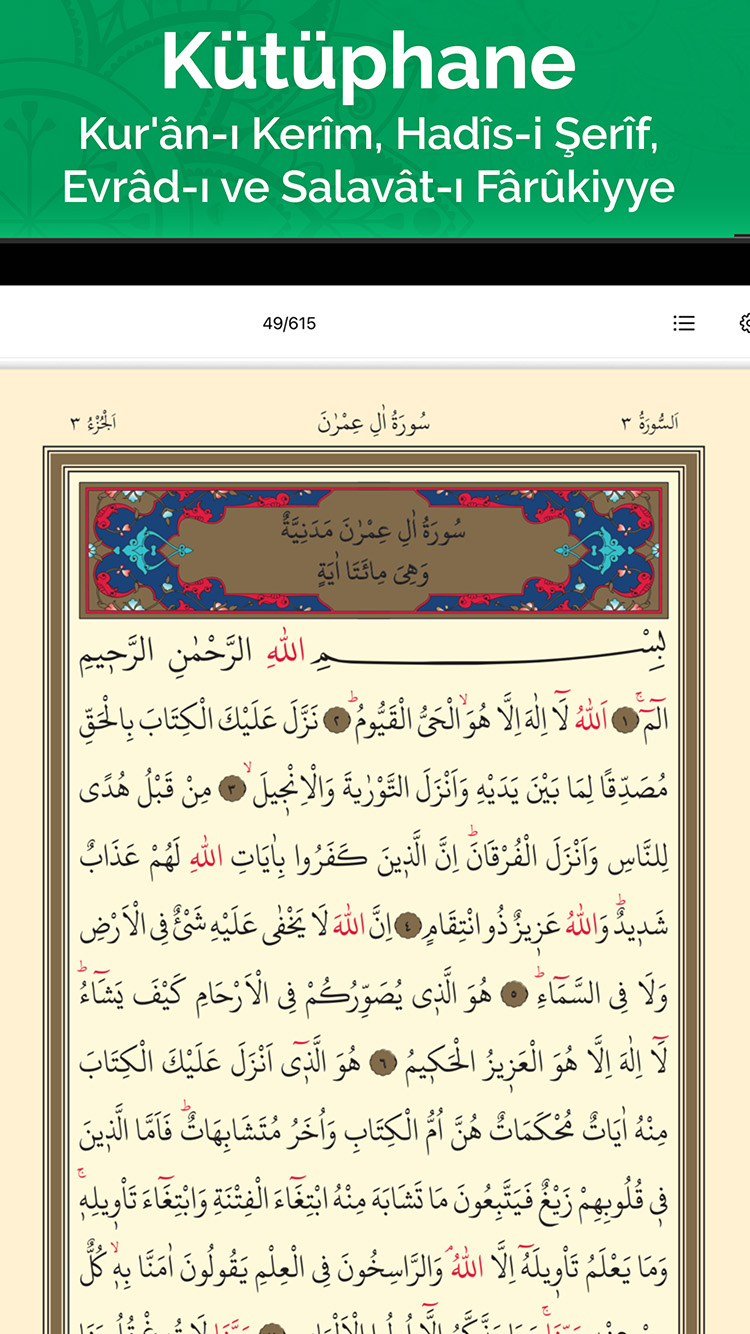 Kütüphane
Kur'ân-ı Kerîm, Hadîs-i Şerîf,
Evrâd-ı ve Salavât-ı Fârûkiyye
49/615
اَلسُّورَةُ ٣ سُورَةُ اٰلِ عِمْرٰنَ اَلْجُزْءُ ٣
سُورَةُ اٰلِ عِمْرٰنَ مَدَنِيَّةٌ
وَهِىَ مِائَتَا اٰيَةٍ
بِسْمِ اللّٰهِ الرَّحْمٰنِ الرَّح۪يمِ
الٓمٓۚ ﴿١﴾ اَللّٰهُ لَٓا اِلٰهَ اِلَّا هُوَۙ الْحَىُّ الْقَيُّومُۜ ﴿٢﴾ نَزَّلَ عَلَيْكَ الْكِتَابَ بِالْحَقِّ
مُصَدِّقًا لِمَا بَيْنَ يَدَيْهِ وَاَنْزَلَ التَّوْرٰيةَ وَالْاِنْج۪يلَۙ ﴿٣﴾ مِنْ قَبْلُ هُدًى
لِلنَّاسِ وَاَنْزَلَ الْفُرْقَانَۜ اِنَّ الَّذ۪ينَ كَفَرُوا بِاٰيَاتِ اللّٰهِ لَهُمْ عَذَابٌ
شَد۪يدٌۜ وَاللّٰهُ عَز۪يزٌ ذُو انْتِقَامٍ ﴿٤﴾ اِنَّ اللّٰهَ لَا يَخْفٰى عَلَيْهِ شَىْءٌ فِى الْاَرْضِ
وَلَا فِى السَّمَٓاءِۜ ﴿٥﴾ هُوَ الَّذ۪ى يُصَوِّرُكُمْ فِى الْاَرْحَامِ كَيْفَ يَشَٓاءُۜ
لَٓا اِلٰهَ اِلَّا هُوَ الْعَز۪يزُ الْحَك۪يمُ ﴿٦﴾ هُوَ الَّذ۪ٓى اَنْزَلَ عَلَيْكَ الْكِتَابَ
مِنْهُ اٰيَاتٌ مُحْكَمَاتٌ هُنَّ اُمُّ الْكِتَابِ وَاُخَرُ مُتَشَابِهَاتٌۜ فَاَمَّا الَّذ۪ينَ
ف۪ى قُلُوبِهِمْ زَيْغٌ فَيَتَّبِعُونَ مَا تَشَابَهَ مِنْهُ ابْتِغَٓاءَ الْفِتْنَةِ وَابْتِغَٓاءَ تَاْو۪يلِه۪ۚ
وَمَا يَعْلَمُ تَاْو۪يلَهُٓ اِلَّا اللّٰهُۢ وَالرَّاسِخُونَ فِى الْعِلْمِ يَقُولُونَ اٰمَنَّا بِه۪ۙ كُلٌّ